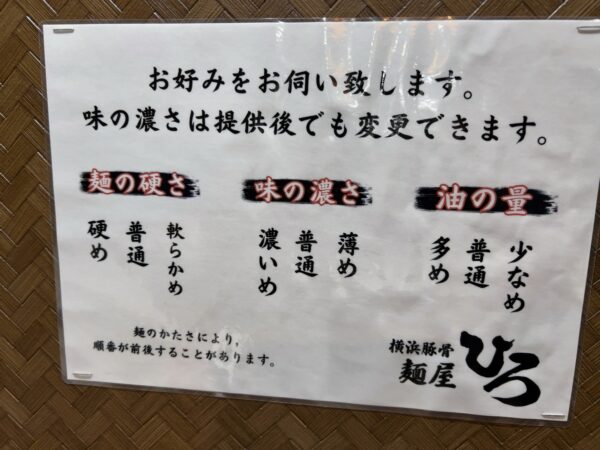 お好みをお伺い致します。
味の濃さは提供後でも変更できます。
麺の硬さ
硬め
普通
軟らかめ
味の濃さ
濃いめ
普通
薄め
油の量
多め
普通
少なめ
麺のかたさにより、
順番が前後することがあります。
横浜豚骨
麺屋
ひろ